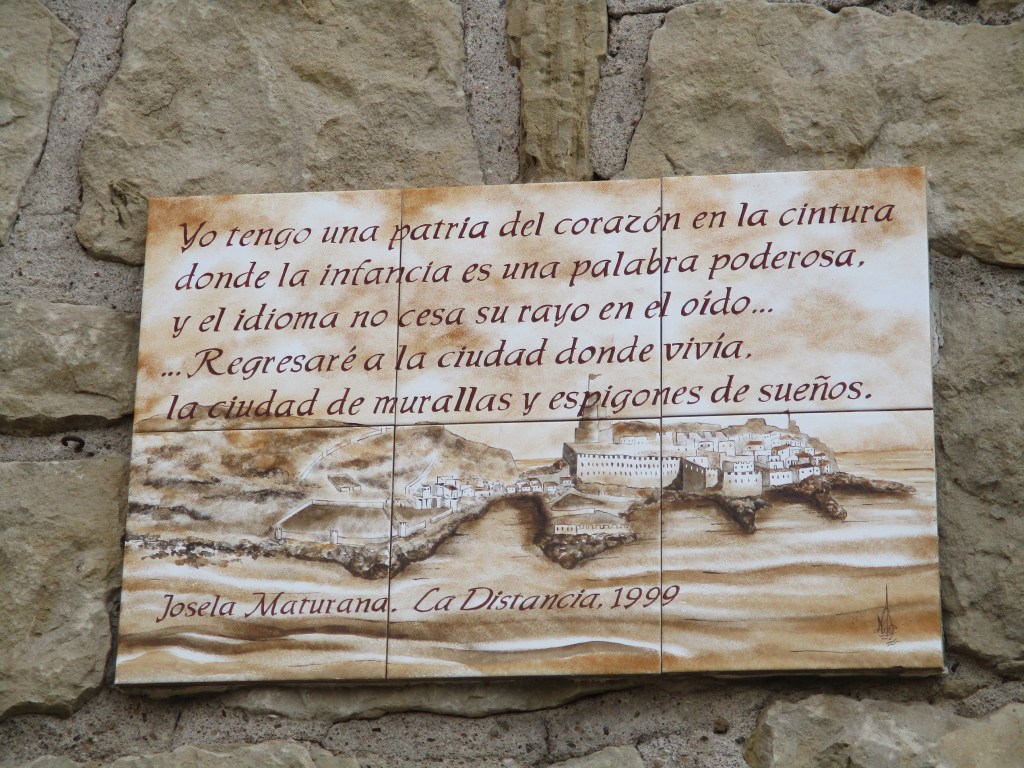 Yo tengo una patria del corazón en la cintura
donde la infancia es una palabra poderosa,
y el idioma no cesa su rayo en el oído...
...Regresaré a la ciudad donde vivía,
la ciudad de murallas y espigones de sueños.
Josela Maturana. La Distancia, 1999